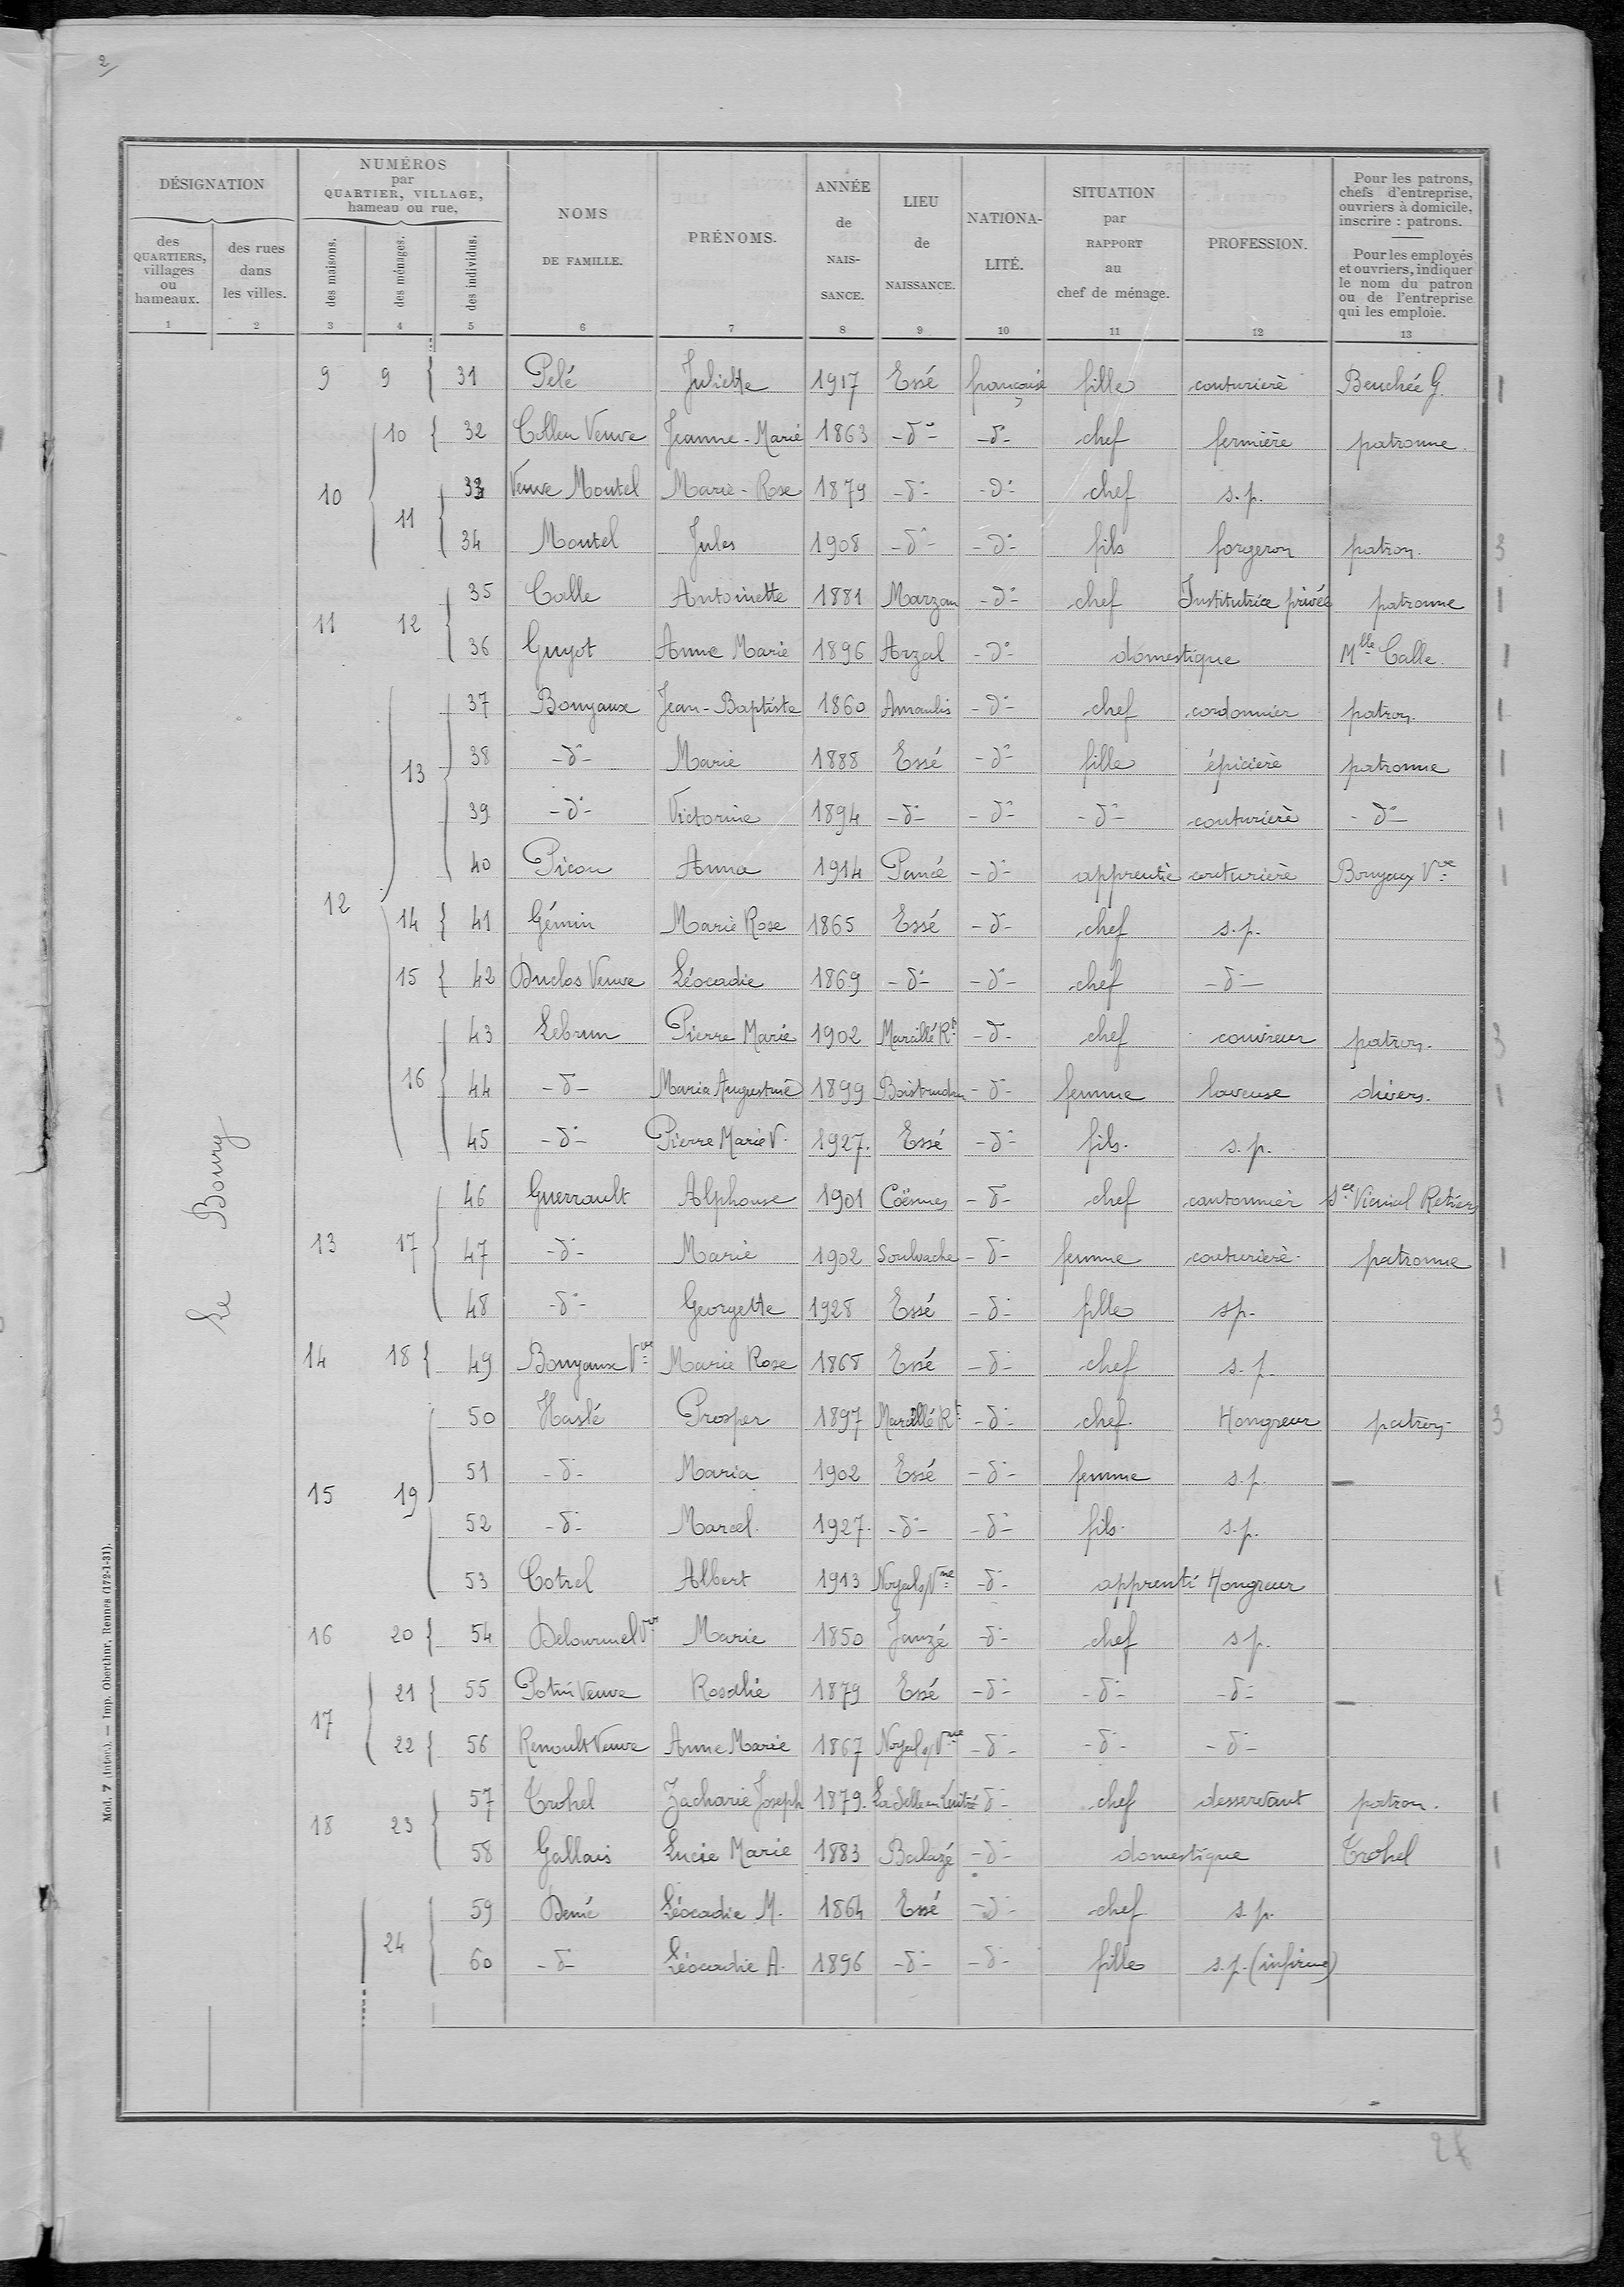 2
DÉSIGNATION
NUMÉROS
par
QUARTIER, VILLAGE,
hameau ou rue,
NOMS
DE FAMILLE.
PRÉNOMS.
ANNÉE
de
NAIS-
SANCE.
LIEU
de
NAISSANCE.
NATIONA-
LITÉ.
SITUATION
par
RAPPORT
au
chef de ménage.
PROFESSION.
Pour les patrons,
chefs d'entreprise,
ouvriers à domicile,
inscrire : patrons.
Pour les employés
et ouvriers, indiquer
le nom du patron
ou de l'entreprise
qui les emploie.
des
QUARTIERS,
villages
ou
hameaux.
des rues
dans
les villes.
des maisons.
des ménages.
des individus.
1 2 3 4 5 6 7 8 9 10 11 12 13
Le Bourg
9 9 31 Pelé Juliette 1917 Essé française fille couturière Beuchée G.
10 10 32 Colleu Veuve Jeanne-Marie 1863 -d°- -d°- chef fermière patronne.
11 33 Veuve Montel Marie-Rose 1879 -d°- -d°- chef s.p.
34 Montel Jules 1908 -d°- -d°- fils forgeron patron. 3
11 12 35 Calle Antoinette 1881 Marzan -d°- chef Institutrice privée patronne 1
36 Guyot Anne Marie 1896 Arzal -d°- domestique Mlle Calle. 1
12 13 37 Bouyaux Jean-Baptiste 1860 Amanlis -d°- chef cordonnier patron. 1
38 -d°- Marie 1888 Essé -d°- fille épicière patronne 1
39 -d°- Victorine 1894 -d°- -d°- -d°- couturière -d°- 1
40 Picou Anna 1914 Pancé -d°- apprentie couturière Bouyaux Vve 1
14 41 Gémin Marie Rose 1865 Essé -d°- chef s.p.
15 42 Duclos Veuve Léocadie 1869 -d°- -d°- chef -d°-
16 43 Lebrun Pierre Marie 1902 Marcillé Rt -d°- chef couvreur patron. 3
44 -d°- Maria Augustine 1899 Boistrudan -d°- femme laveuse divers. 1
45 -d°- Pierre Marie V. 1927. Essé -d°- fils. s.p.
13 17 46 Guerrault Alphonse 1901 Coësmes -d°- chef cantonnier Sce Vicinal Retiers
47 -d°- Marie 1902 Soulvache -d°- femme couturière. patronne 1
48 -d°- Georgette 1928 Essé -d°- fille sp.
14 18 49 Bouyaux Vve Marie Rose 1868 Essé -d°- chef s.p.
15 19 50 Haslé Prosper 1897 Marcillé Rt -d°- chef. Hongreur patron. 3
51 -d°- Maria 1902 Essé -d°- femme s.p.
52 -d°- Marcel. 1927. -d°- -d°- fils. s.p.
53 Cotrel Albert 1913 Noyal s/Vne -d°- apprenti Hongreur 1
16 20 54 Delourmel Vve Marie 1850 Janzé -d°- chef s p.
17 21 55 Potin Veuve Rosalie 1879 Essé -d°- -d°- -d°-
22 56 Renoult Veuve Anne Marie 1867 Noyal s/Vne -d°- -d°- -d°-
18 23 57 Trohel Zacharie Joseph 1879. La Selle en Luitré -d°- chef desservant patron. 1
58 Gallais Lucie Marie 1883 Balazé -d°- domestique Trohel 1
24 59 Demé Léocadie M. 1864 Essé -d°- chef s.p.
60 -d°- Léocadie A. 1896 -d°- -d°- fille s.p. (infirme)
Mod. 7 (inter.). — Imp. Oberthur, Rennes (172-1-31).